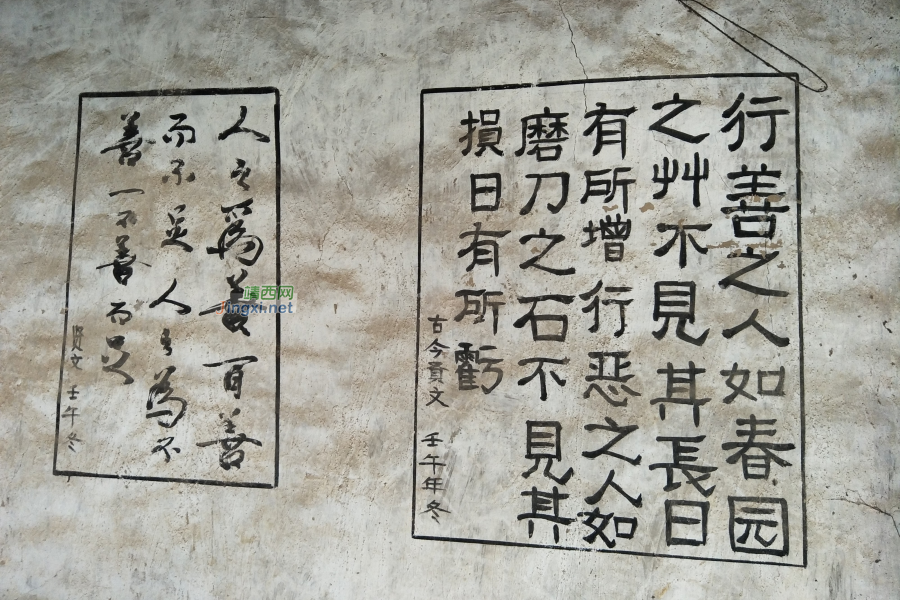 行善之人如春园
之艸不見其長日
有所增行恶之人如
磨刀之石不見其
損日有所虧
古今賢文 壬午年冬
人之爲善百善
而不足人之爲不
善一不善而足
賢文 壬午冬
靖西网
jingxi.net